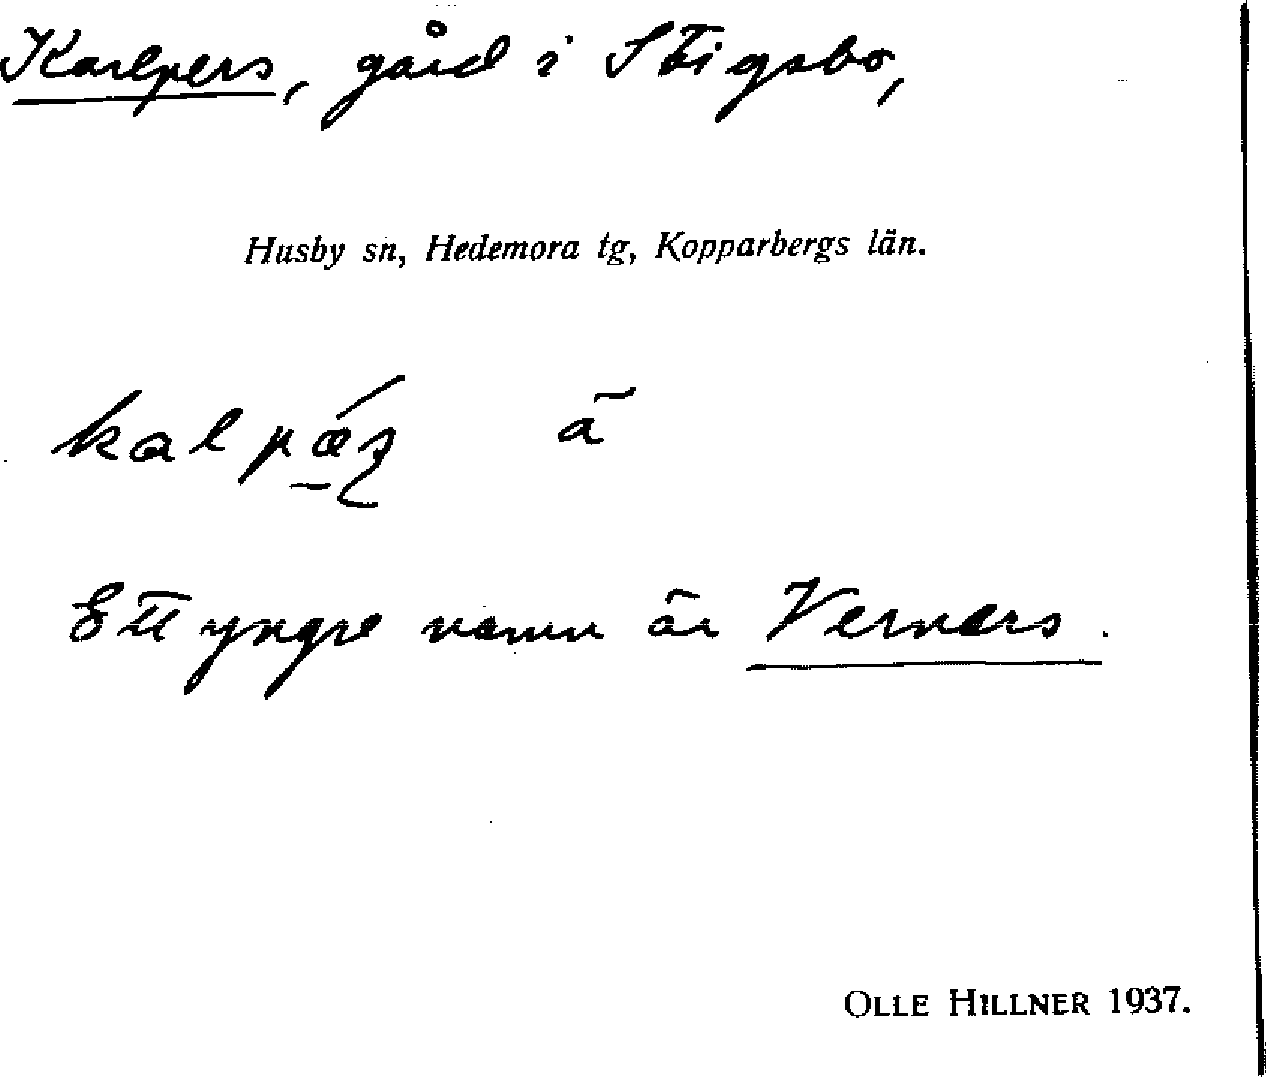 Karlpers, gård i Stigsbo,
Husby sn, Hedemora tg, Kopparbergs län.
ã
Ett yngre namn är Verners.
OLLE HILLNER 1937.